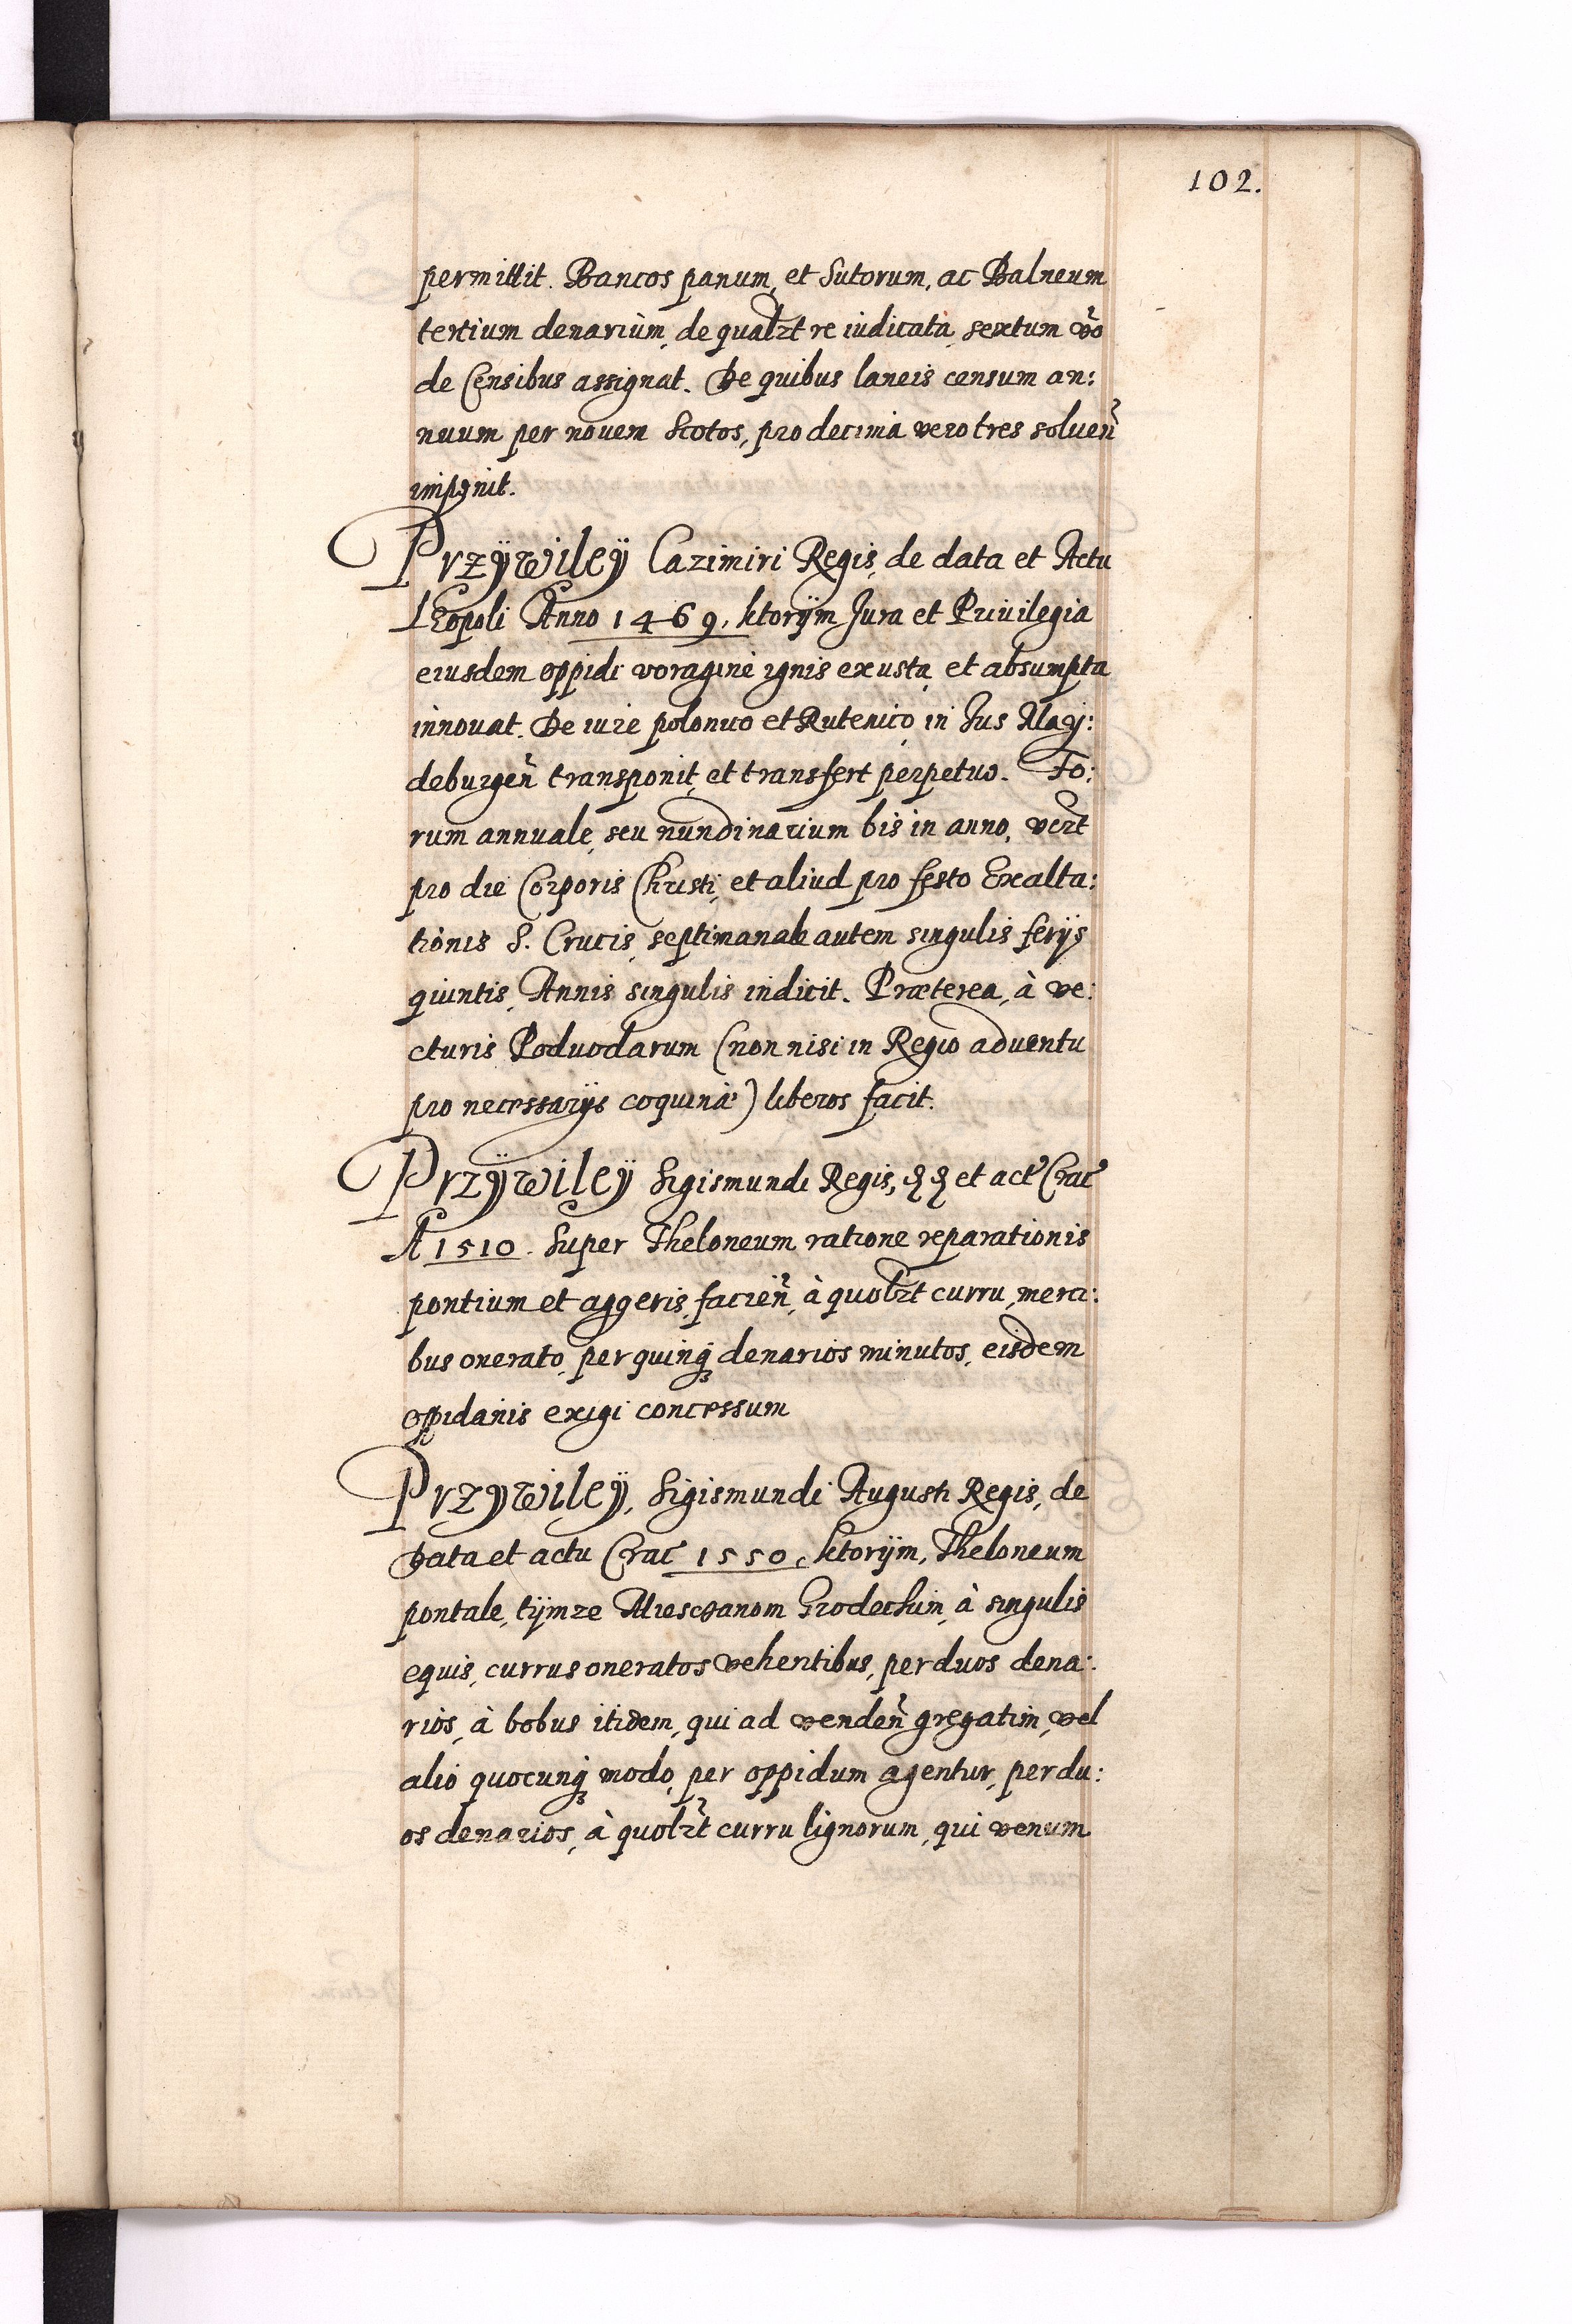 102.
permittit. Bancos panum, et Sutorum, ac Balneum
tertium denarium, de qualzt re iudicata, sextum v̄o
de Censibus assignat. De quibus laneis censum an:
nuum per nouem Scotos, pro decima vero tres soluen̄
imponit.
Przÿwiley Cazimiri Regis, de data et Actu
Leopoli Anno 1469, ktorÿm Jura et Priuilegia
eiusdem oppidi voragine ignis exusta, et absumpta
innouat. De iure polonico et Rutenico, in Jus Mag:
deburgen̄ transponit, et transfert perpetuo. Fo:
rum annuale, seu nundinarium bis in anno, vezt
pro die Corporis Christi, et aliud pro festo Exalta:
tionis S. Crucis, septimanale autem singulis ferijs
quintis, Annis singulis indicit. Præterea, à ve:
cturis Poduodarum (non nisi in Regio aduentu
pro necessarijs coquinæ) liberos facit.
Przÿwileÿ Sigismundi Regis, et act Crac
A 1510. Super Theloneum ratione reparationis
pontium et aggeris, facien̄, à quolzt curru, merci:
bus onerato, per quinq; denarios minutos, eisdem
oppidanis exigi concessum
Przywileÿ, Sigismundi Augusti Regis, de
Data et actu Crac 1550, ktorÿm, Theloneum
pontale, tÿmze Miesczanom Grodeckim, à singulis
equis, currus oneratos vehentibus, per duos dena:
rios, à bobus itidem, qui ad venden̄ gregatim, vel
alio quocunq; modo, per oppidum agentur, per du:
os denarios, à quolzt curru lignorum, qui venum